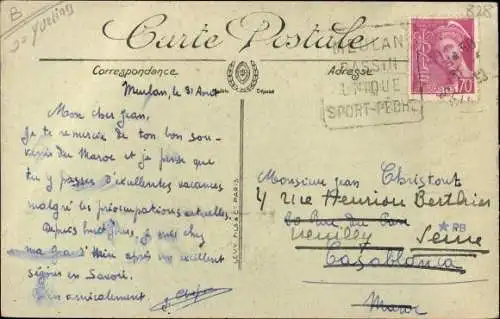 B
78 Yvelines
828
Carte Postale
Correspondance
Adresse
MEULAN
BASSIN
UNIQUE
SPORT-PÊCHE
POSTES
70
Meulan, le 31 Août
Mon cher Jean,
Je te remercie de ton bon sou-
venir du Maroc et je pense que
tu y passes d'excellentes vacances
malgré les préoccupations actuelles.
Depuis huit jours, je suis chez
ma Grand'Mère après un excellent
séjour en Savoie.
Bien amicalement.
LEVY
PARIS
Monsieur Jean Christout
4 rue Henrion Berthier
Neuilly
Seine
*RB
Casablanca
Maroc